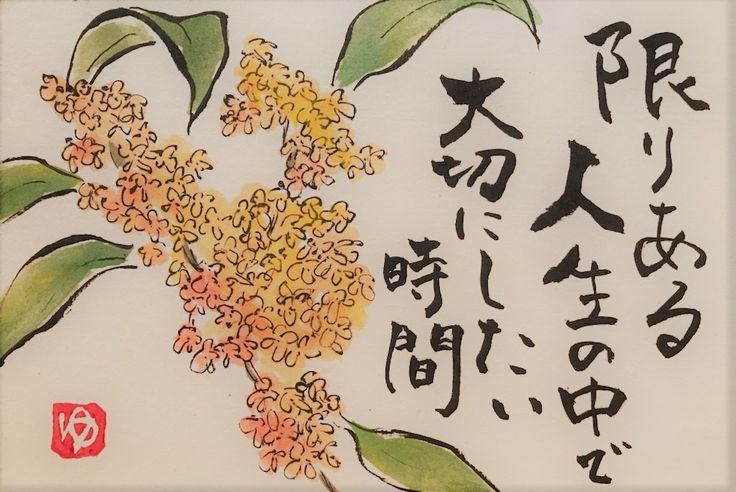 限りある
人生の中で
大切にしたい
時間
ゆ